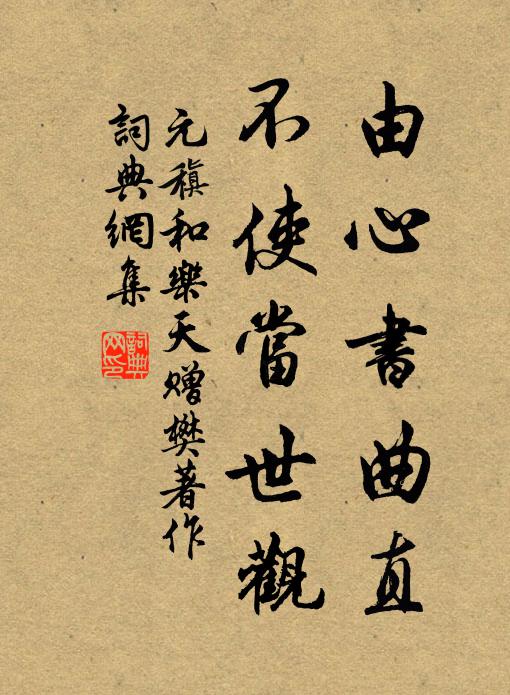 由心書曲直
不使當世觀
元稹和樂天贈樊著作
詞典網集
詞典網印